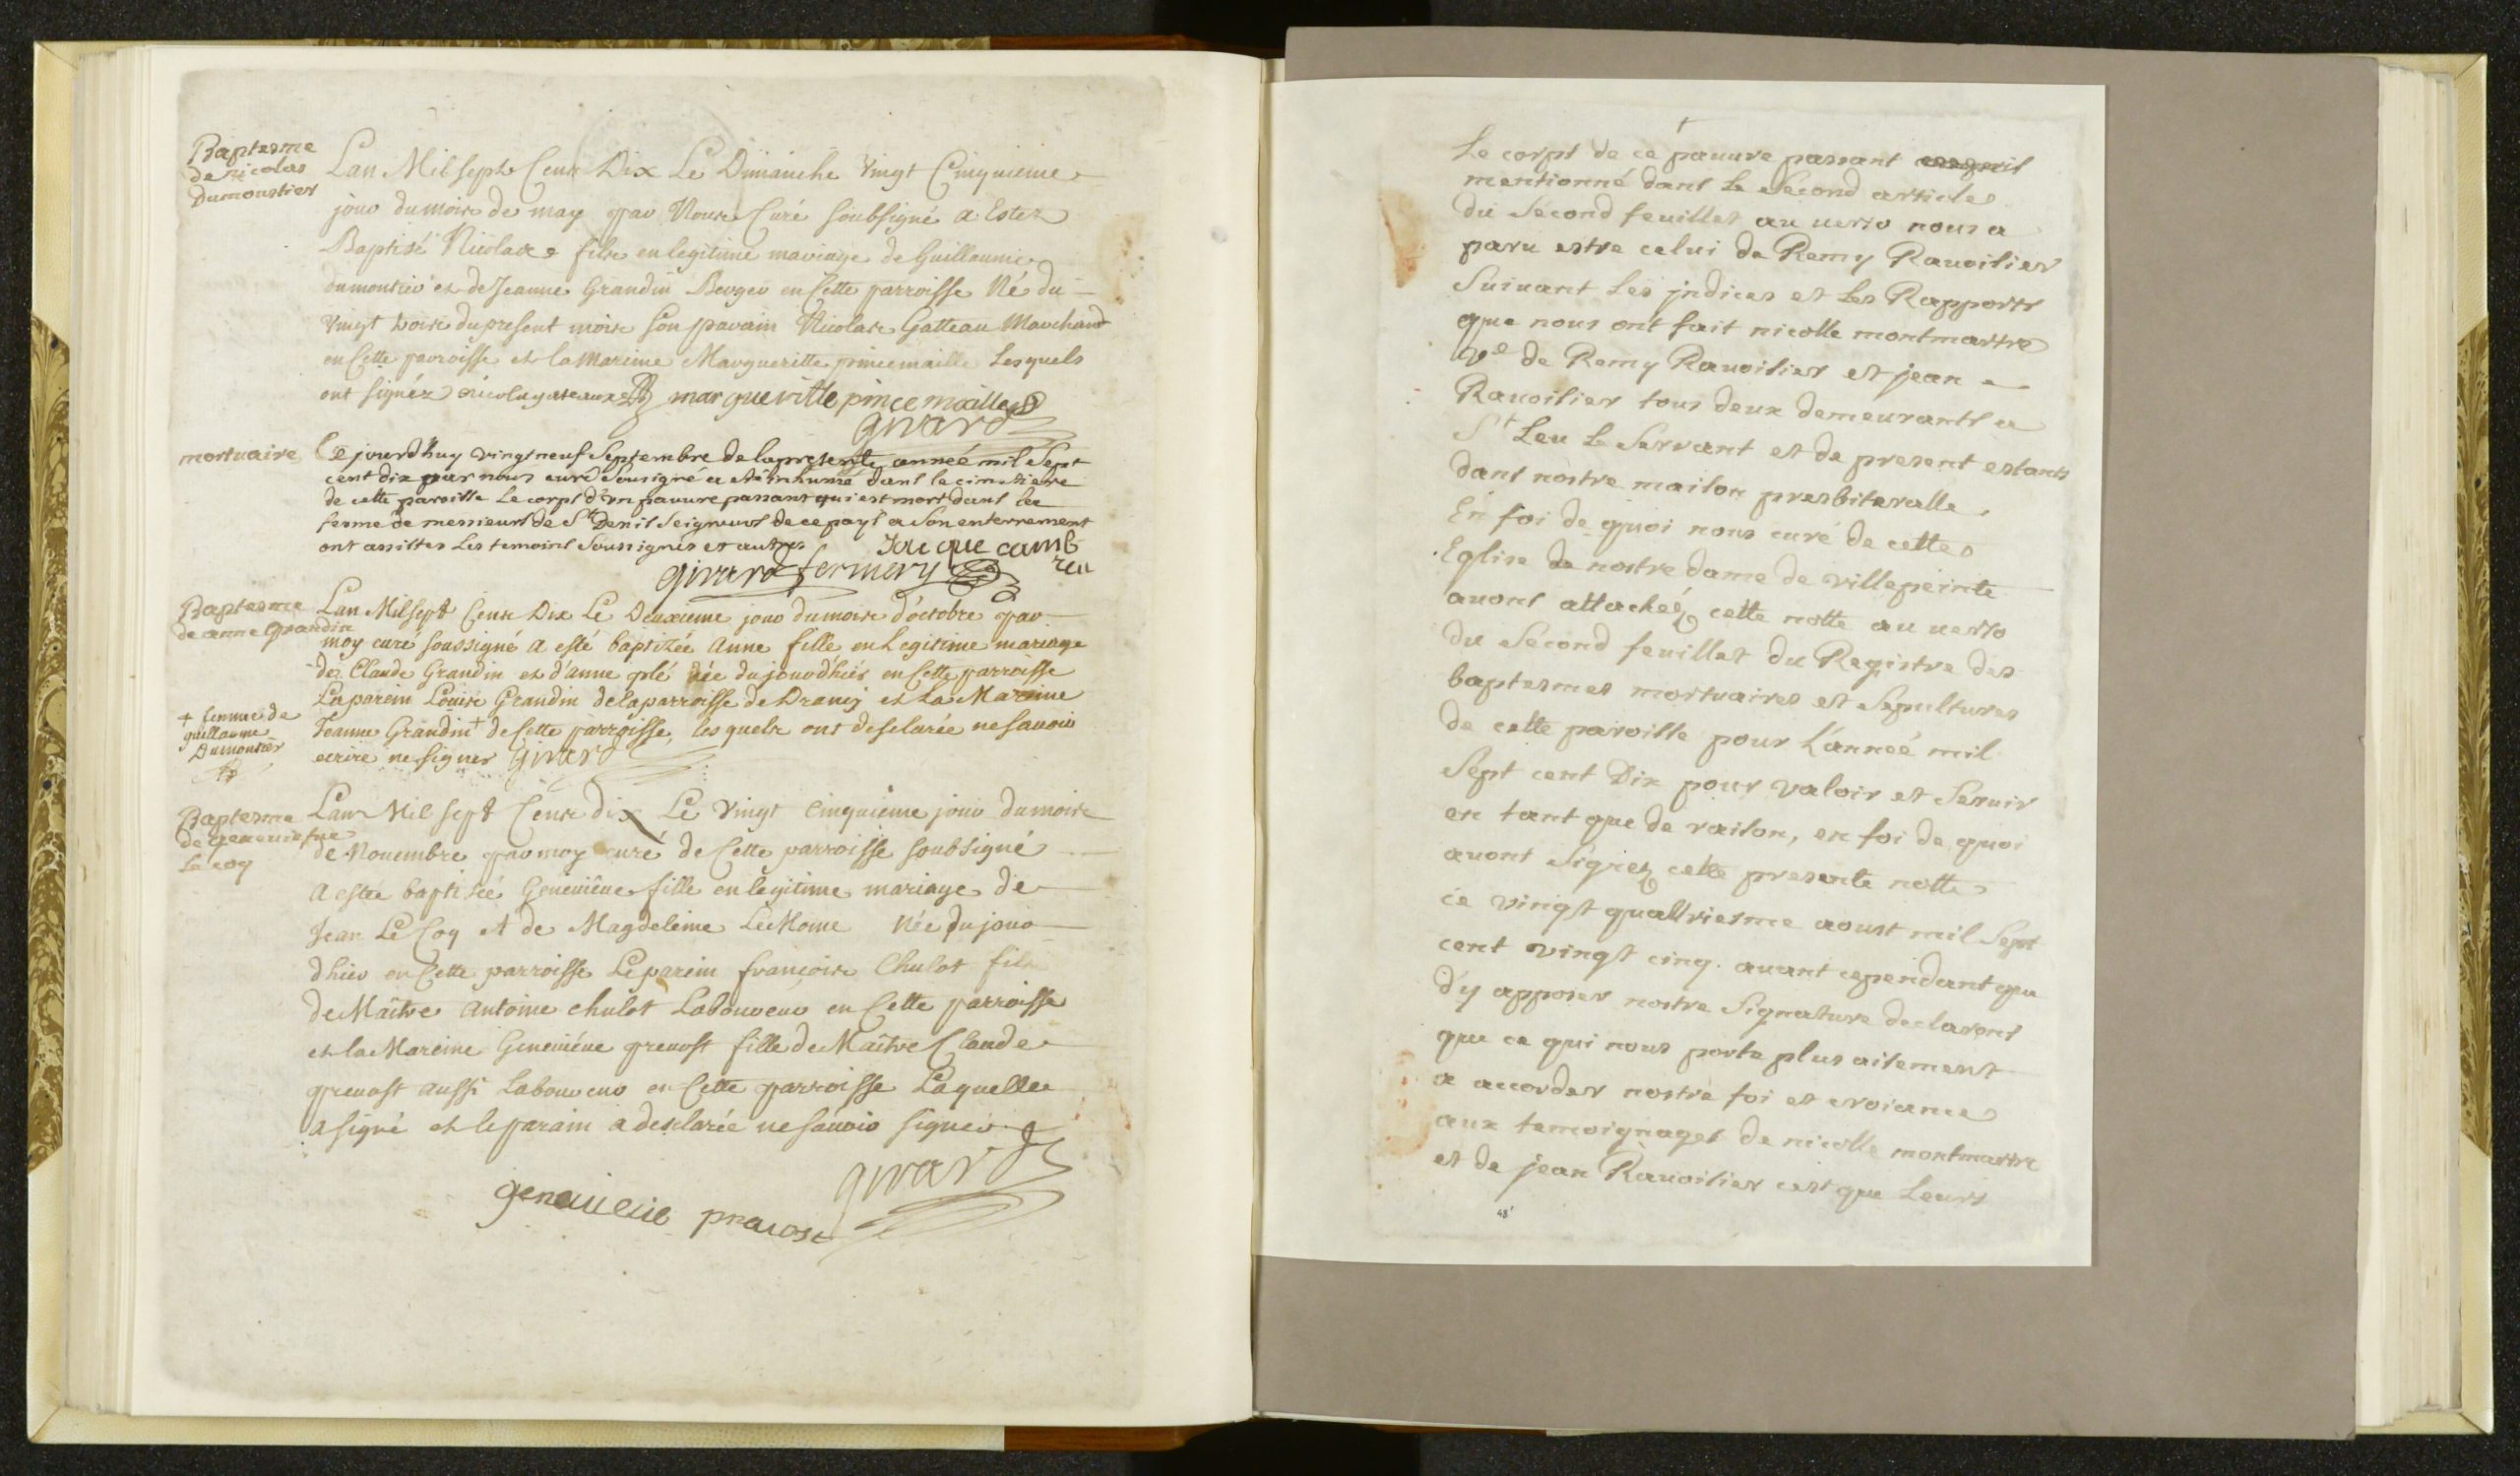 Baptesme
de nicolas
Dumoustier
Lan Mil sept Cens Dix Le Dimanche vingt Cinquieme
jour du mois de may par Nous Curé soubsigné a Estez
Baptisé Nicolas fils en legitime mariage de Guillaume
dumontier et de Jeanne Grandin Berger en Cette parroisse Né du
vingt trois du present mois son parain Nicolas Gatteau Marchand
en Cette parroisse et la Mareine Margueritte princemaille Lesquels
ont signéz nicolas gateaux margueritte pincemaille
Girard
mortuaire
Ce jourd'huy vingt neuf Septembre de la presente anneé mil Sept
cent dix par nous curé Sousigné a eté inhumé dans le cimetiere
de cette paroisse Le corps d'un pauure passant qui est mort dans la
ferme de messieurs de St Denis Seigneurs de ce pays a Son enterrement
ont assistes Les temoins Soussignés et autres Jacque camb
reu
Girard fermery
Baptesme
de anne Grandin
Lan Mil sept Cens Dix Le Deuxieme jour du mois d'octobre par
moy curé soussigné a esté baptizée Anne fille en Legitime mariage
de Claude Grandin et d'anne plé née du jour d'hier en Cette parroisse
Le parein Louis Grandin de la parroisse de Drancy et La Mareine
Jeanne Grandin + de Cette parroisse, lesquels ont desclarée ne sauoir
ecrire ne signer Girard
+ femme de
guillaume
Dumontier
Baptesme
de geneuiefue
Le coq
Lan Mil sept Cens dix Le Vingt Cinquieme jour du mois
de Nouembre par moy curé de Cette parroisse soubsigné
a estée baptisée Geneuiéue fille en legitime mariage de
Jean Le Coq et de Magdeleine Le Moine Née du jour
d'hier en Cette parroisse Le parein francois Chulot fils
de Maitre Antoine chulot Laboureur en Cette parroisse
et la Mareine Geneuiéue preuost fille de Maître Claude
preuost aussi Laboureur en Cette parroisse Laquelle
a signé et le parain a desclarée ne sauoir signer
Girard
geneuieue preuost
Le corps de ce pauure passant
mentionné dans Le Second article
du Second feuillet au uerso nous a
paru estre celui de Remy Rauoilier
Suiuant Les jndices et Les Rapports
que nous ont fait nicolle montmartre
Ve de Remy Rauoilier et jean
Rauoilier tous deux demeurants a
St Leu Le Servant et de present estants
dans nostre maison presbiteralle.
En foi de quoi nous curé de cette
Eglise de nostre dame de villepeinte
auons attacheé cette notte au uerso
du Second feuillet du Registre des
baptesmes mortuaires et Sepultures
de cette paroisse pour L'anneé mil
Sept cent Dix pour valoir et Seruir
en tant que de raison, en foi de quoi
auons Signez cette presente notte
ce vingt quattriesme aoust mil Sept
cent vingt cinq. auant cependant que
d'y apposer nostre Signature declarons
que ce qui nous porte plus aisement
a accorder nostre foi et croiance
aux temoignages de nicolle montmartre
et de jean Rauoilier c'est que Leurs
48